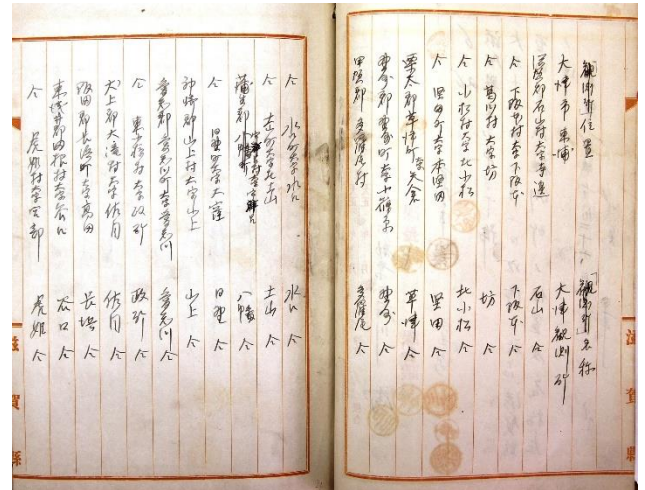 「観測所」位置 「観測所」名称
大津市東浦 大津観測所
滋賀郡石山村大字寺邊 石山 仝
仝 下阪本村大字下阪本 下阪本 仝
仝 葛川村大字坊 坊 仝
仝 小松村大字北小松 北小松 仝
仝 堅田町大字本堅田 堅田 仝
栗太郡草津町大字矢倉 草津 仝
甲賀郡 多羅尾村 多羅尾 仝
滋賀縣
仝 水口町大字水口 水口 仝
仝 土山町大字北土山 土山 仝
蒲生郡八幡町 八幡 仝
仝 日野町大字大窪 日野 仝
神崎郡山上村大字山上 山上 仝
愛知郡愛知川町大字愛知川 愛知川 仝
仝 東小椋村大字政所 政所 仝
犬上郡大滝村大字佐目 佐目 仝
阪田郡長浜町大字高田 長浜 仝
東浅井郡田根村大字谷口 谷口 仝
仝 虎姫村大字宮部 虎姫 仝
滋賀縣